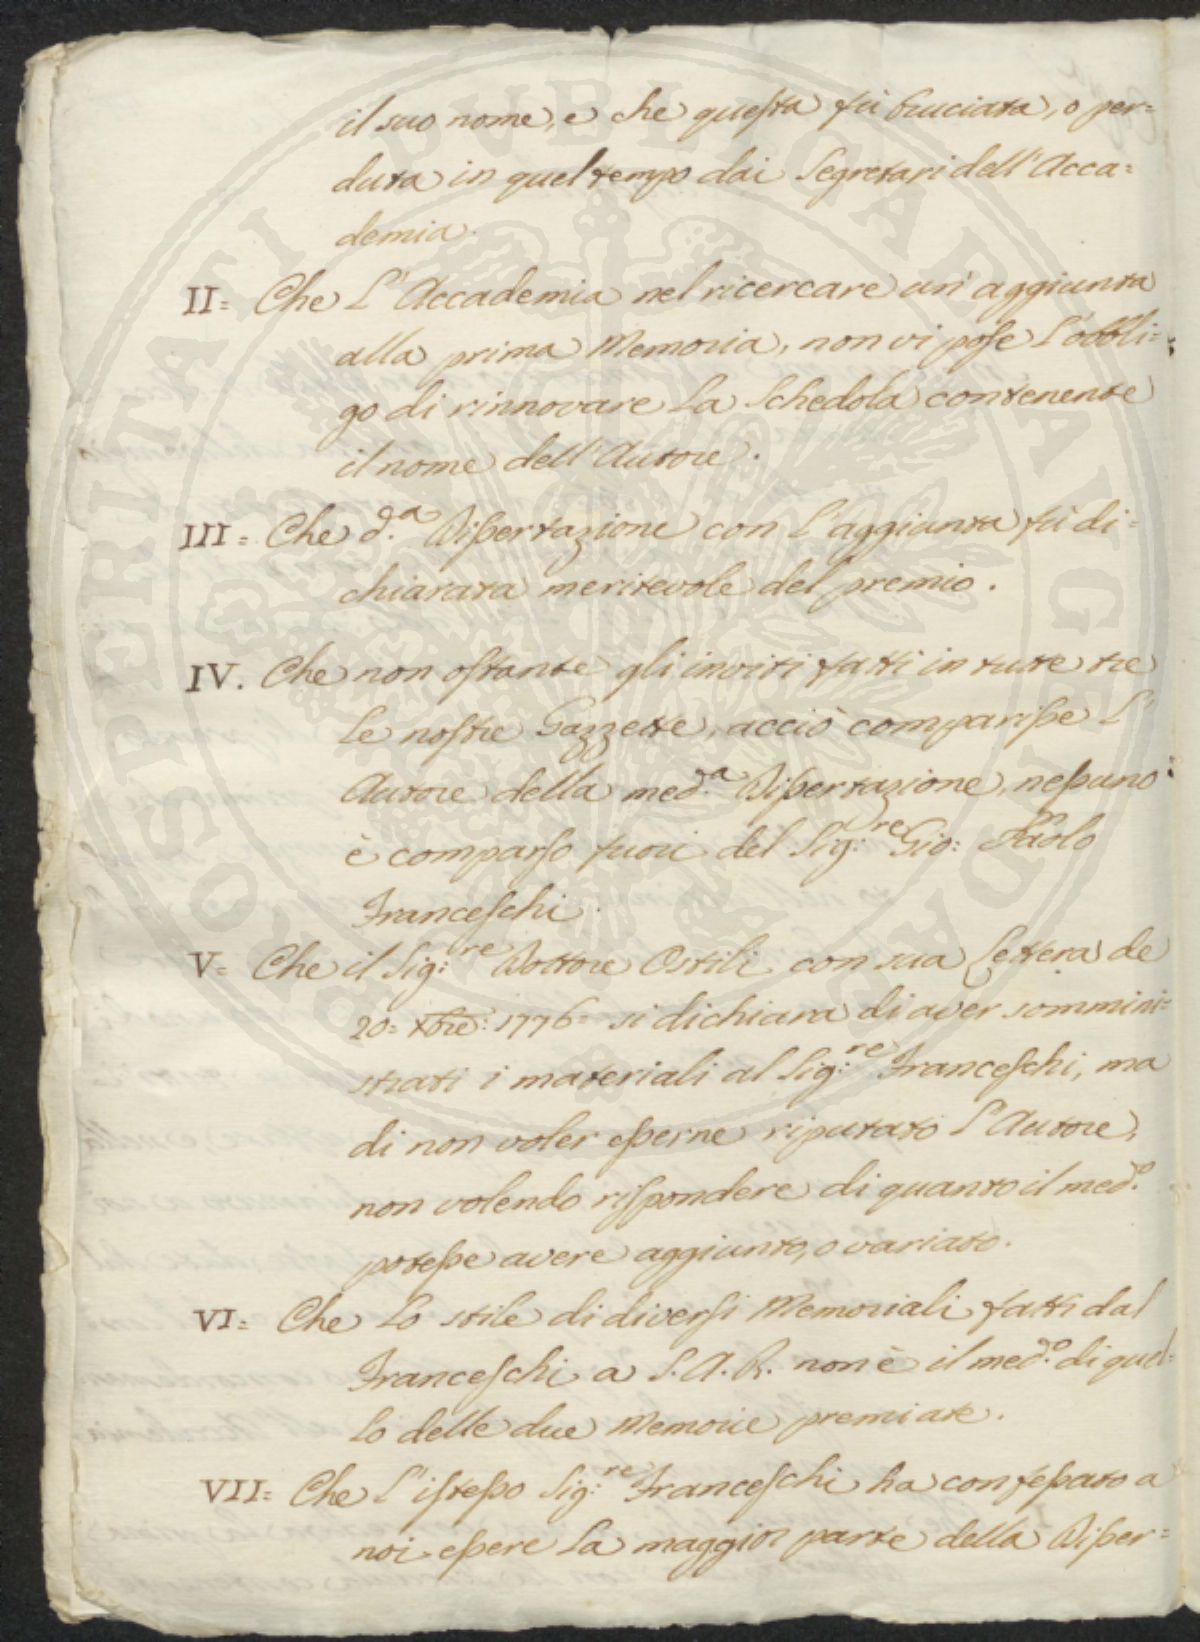 il suo nome, e che questa fù bruciata, o per=
duta in quel tempo dai Segretari dell'Acca=
demia.
II= Che L'Accademia nel ricercare un'aggiunta
alla prima Memoria, non vi pose L'obbli=
go di rinnovare La Schedola contenente
il nome dell'Autore.
III= Che d.a Dissertazione con L'aggiunta fù di=
chiarata meritevole del premio.
IV. Che non ostante gli inviti fatti in tutte tre
Le nostre Gazzette, acciò comparisse L'
Autore della med.a Dissertazione, nessuno
è comparso fuori del Sig:re Gio: Paolo
Franceschi.
V= Che il Sig:re Dottore Ostili con sua Lettera de
20= Xbre: 1776= si dichiara di aver sommini=
strati i materiali al Sig:re Franceschi, ma
di non voler esserne riputato L'Autore,
non volendo rispondere di quanto il med.o
potesse avere aggiunto, o variato.
VI= Che Lo stile di diversi Memoriali fatti dal
Franceschi a S.A.R. non è il med.o di quel=
Lo delle due Memorie premiate.
VII= Che L'istesso Sig:re Franceschi ha confessato a
noi essere La maggior parte della Disser=
PROSPERITATI PUBLICAE AUGENDAE